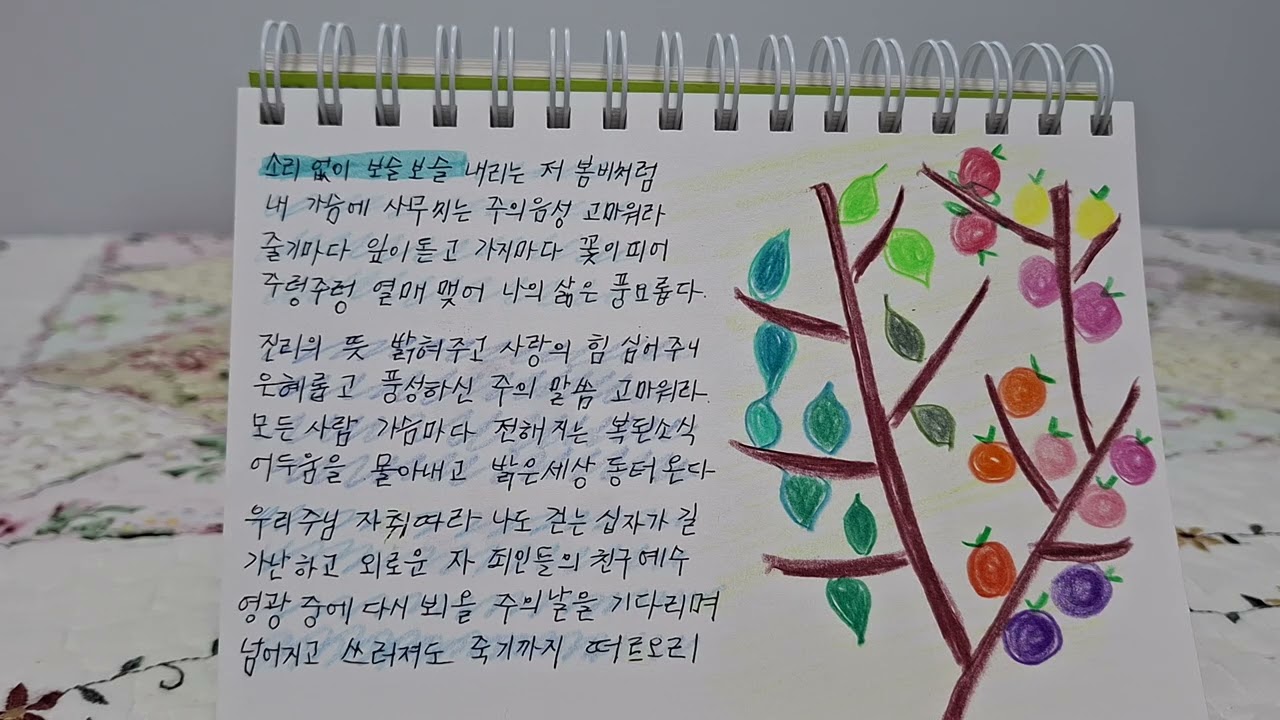 소리 없이 보슬보슬 내리는 저 봄비처럼
내 가슴에 사무치는 주의음성 고마워라
줄기마다 잎이 돋고 가지마다 꽃이 피어
주렁주렁 열매 맺어 나의 삶은 풍요롭다.
진리의 뜻 밝혀주고 사랑의 힘 심어주니
은혜롭고 풍성하신 주의 말씀 고마워라.
모든 사람 가슴마다 전해지는 복된소식
어두움을 몰아내고 밝은세상 동터 온다
우리주님 자취따라 나도 걷는 십자가 길
가난하고 외로운 자 죄인들의 친구예수
영광 중에 다시 뵈올 주의날을 기다리며
넘어지고 쓰러져도 죽기까지 따르오리